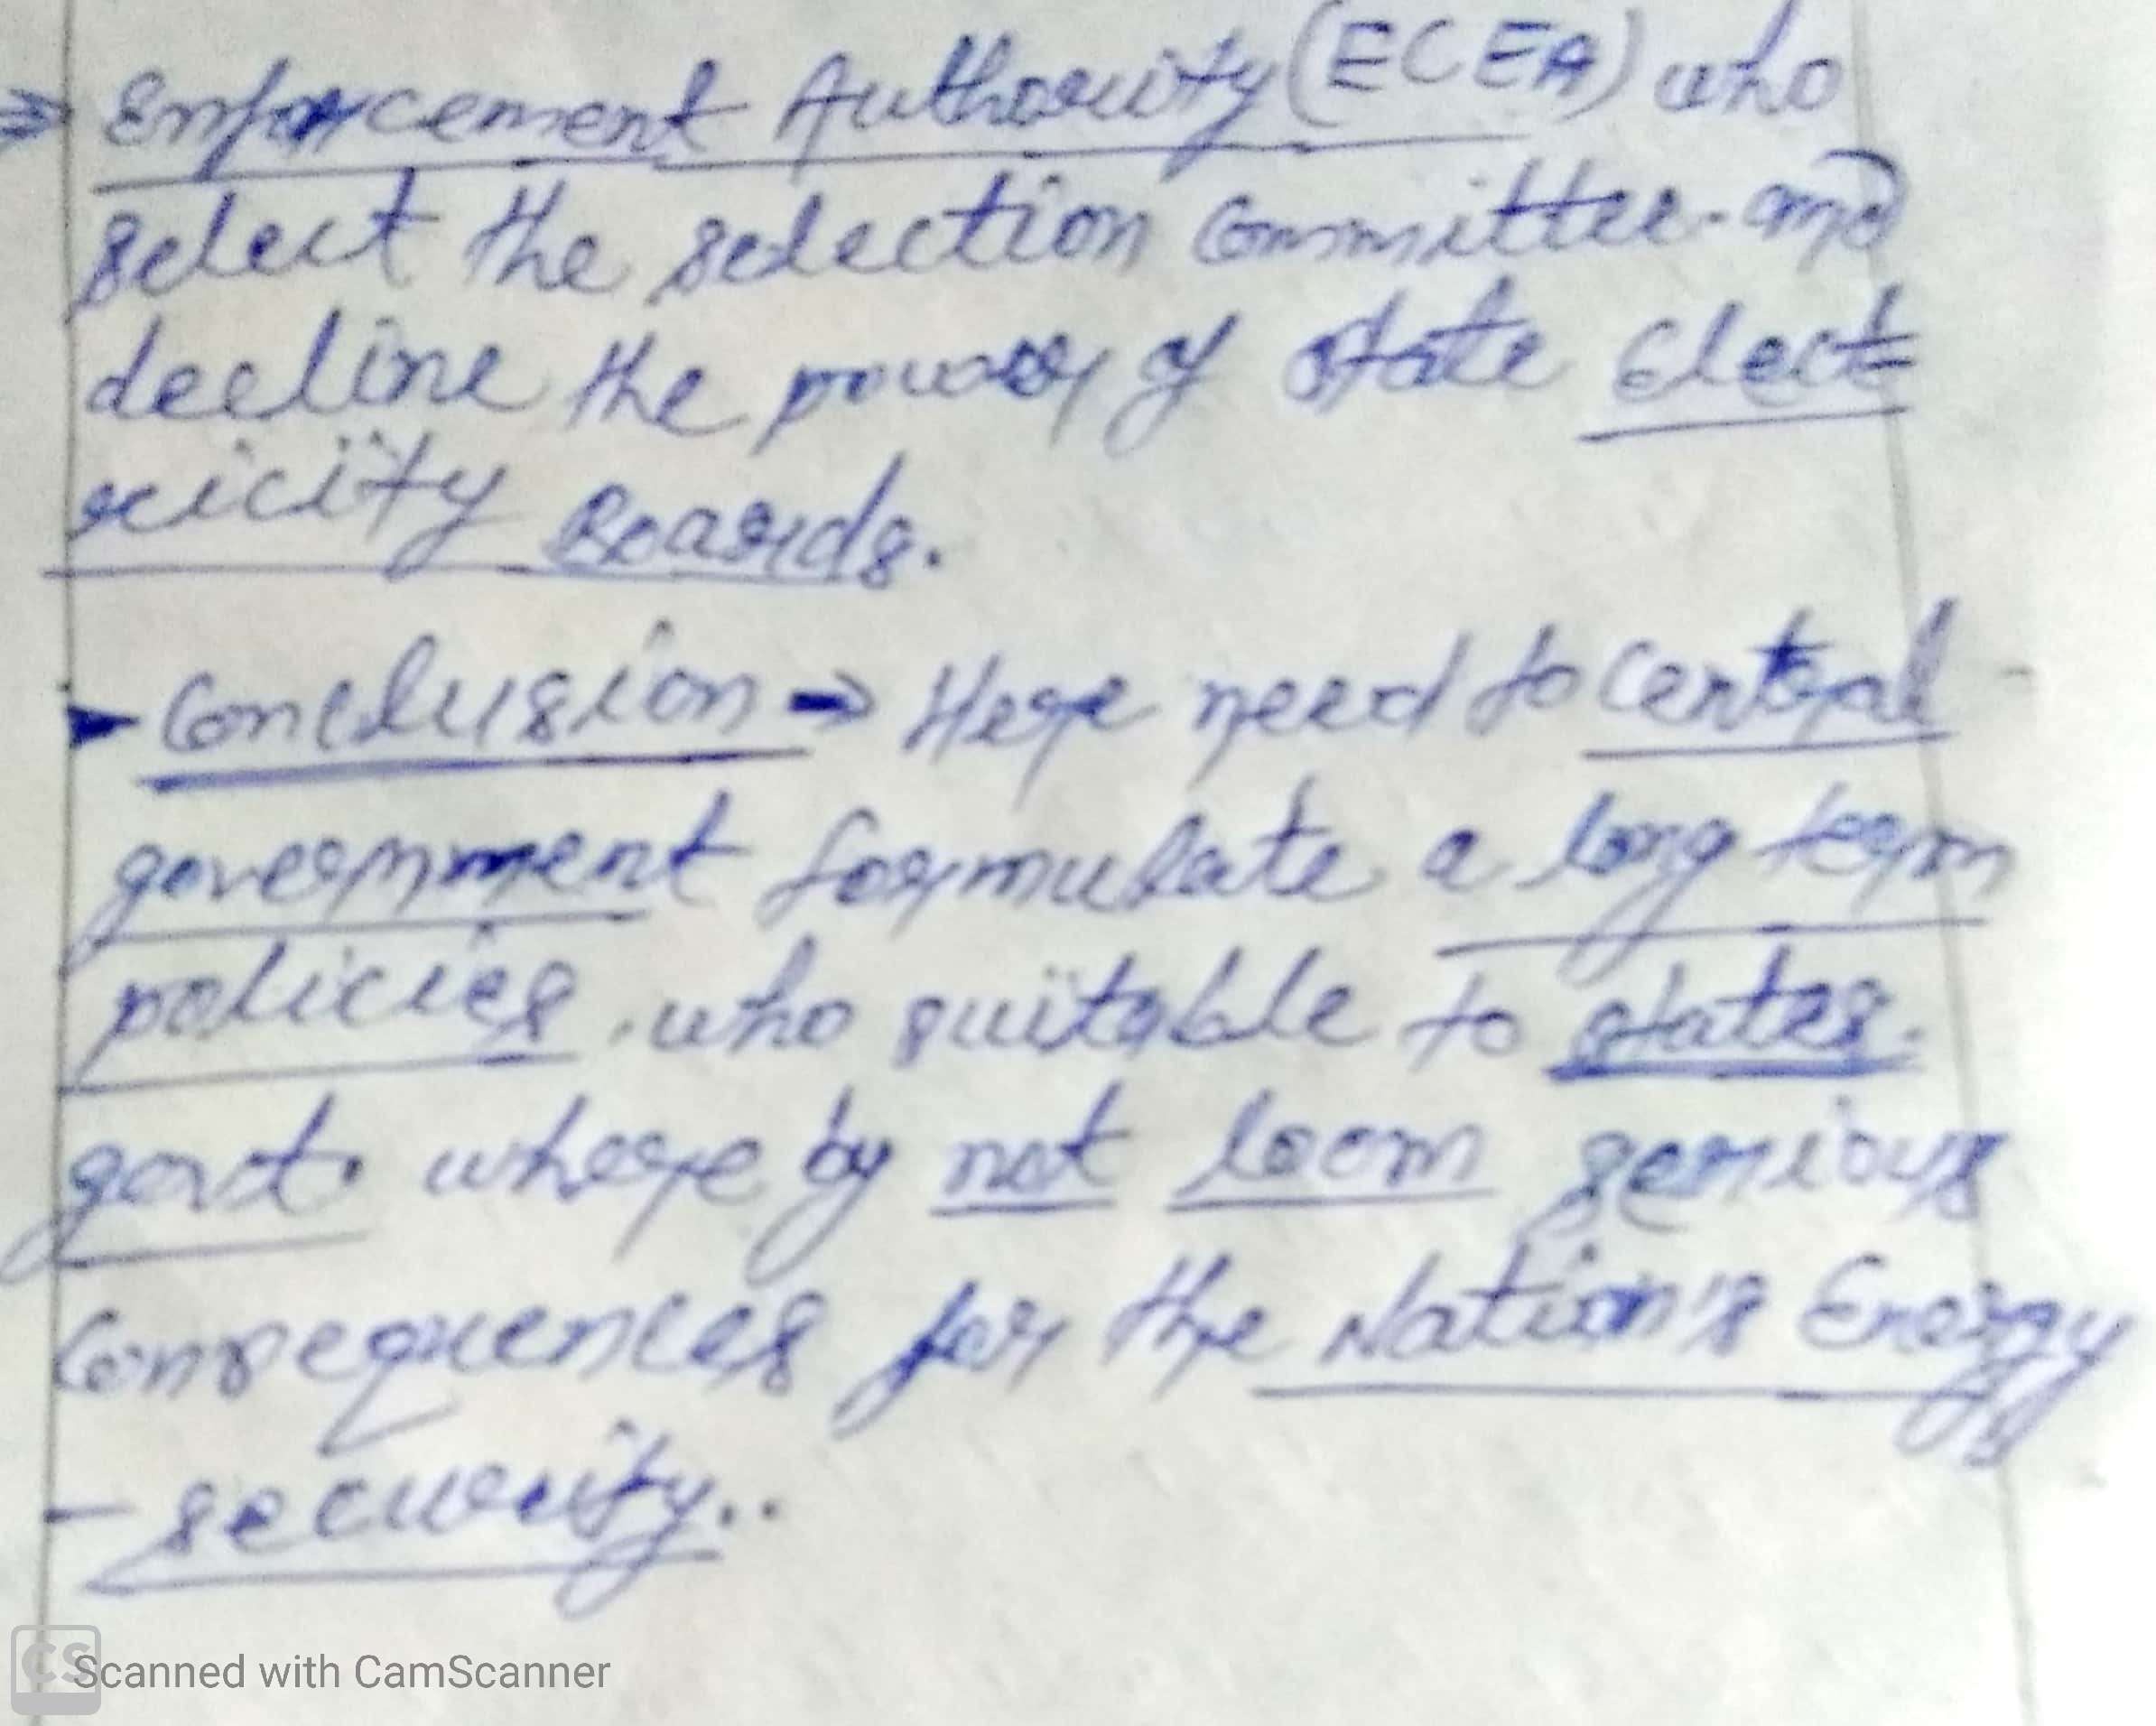 ⇒ Enforcement Authority (ECEA) who
select the selection Committee. and
decline the power of state Elect
ricity Boards.
Conclusion → Here need to Central
government formulate a long term
policies who suitable to states.
govt. where by not loom serious
Consequences for the Nation's Energy
- security..
CS Scanned with CamScanner